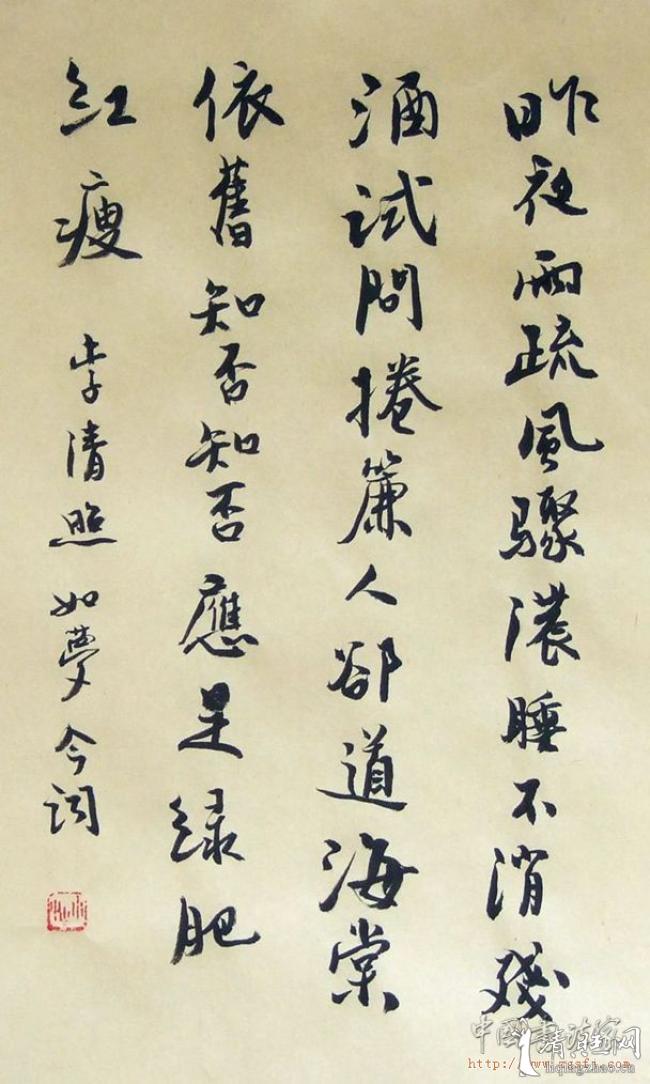 昨夜雨疏風驟濃睡不消殘
酒試問捲簾人卻道海棠
依舊知否知否應是緑肥
紅瘦 李清照如夢令詞
中國書法家
http://www.zgsfj.com
清真詞网
liqingzhao.cn